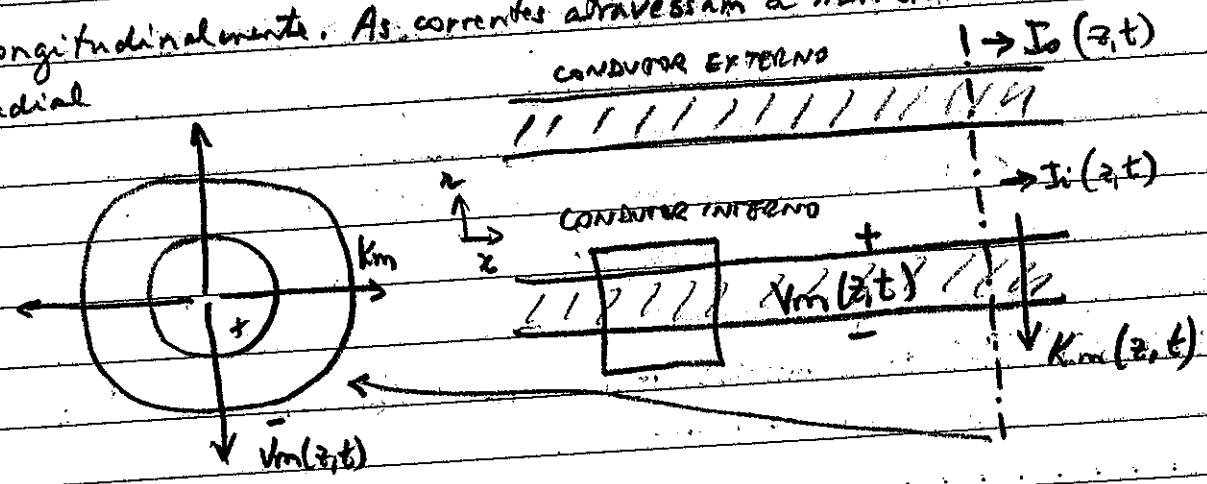 ongitudinalmente. As correntes atravessam a
adial
CONDUTOR EXTERNO
→ Io (z,t)
→ Ii (z,t)
r
z
CONDUTOR INTERNO
Km
+
+
Vm(z,t)
-
Km(z,t)
-
Vm(z,t)